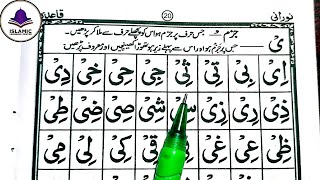 نورانی 20 قاعدہ
جزم ۡ جس حرف پر جزم ہو اس کو پہلے حرف سے ملا کر پڑھیں۔
یْ جس پر جزم ہو اور اس سے پہلے زیر ہو تھوڑا کھینچیں اور معروف پڑھیں
اِیْ بِیْ تِیْ ثِیْ جِیْ حِیْ خِیْ دِیْ
ذِیْ رِیْ زِیْ سِیْ شِیْ صِیْ ضِیْ طِیْ
ظِیْ عِیْ غِیْ فِیْ قِیْ کِیْ لِیْ مِیْ
ISLAMIC